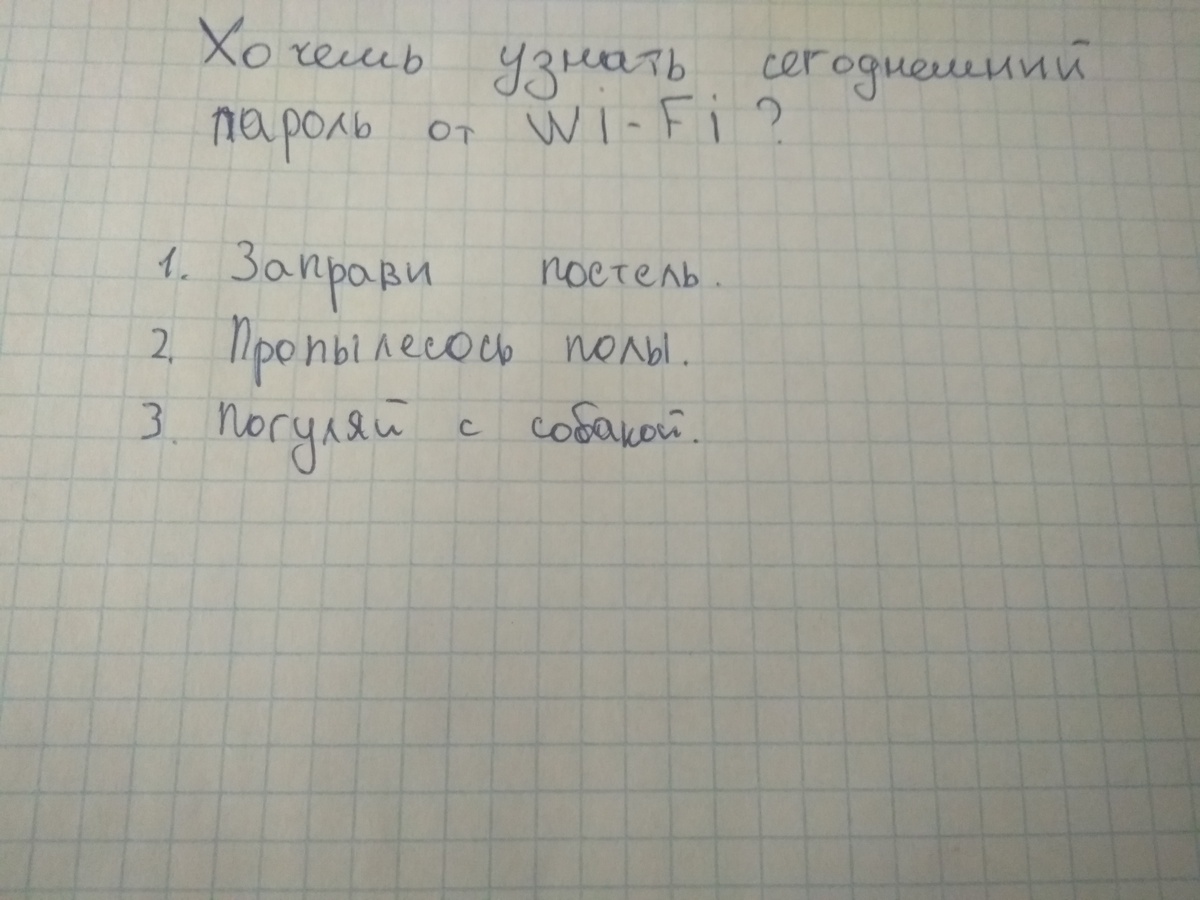 Хочешь узнать сегоднешний
пароль от Wi-Fi?
1. Заправи постель.
2. Пропылесось полы.
3. Погуляй с собакой.